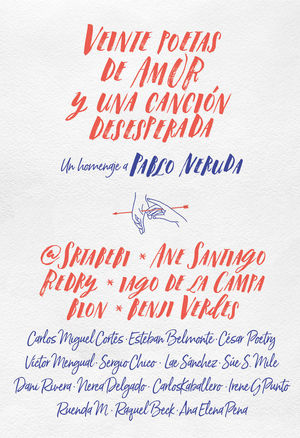 VEINTE POETAS
DE AMOR
Y UNA CANCIÓN
DESESPERADA
Un homenaje a PABLO NERUDA
@SRTABEBI * ANE SANTIAGO
REDRY * IAGO DE LA CAMPA
BION * BENJI VERDES
Carlos Miguel Cortés · Esteban Belmonte · César Poetry
Víctor Mengual · Sergio Chico · Lae Sánchez · Sue S. Mile
Dani Rivera · Nerea Delgado · CarlosKaballero · Irene G Punto
Ruenda M. · Raquel Beck · Ana Elena Pena